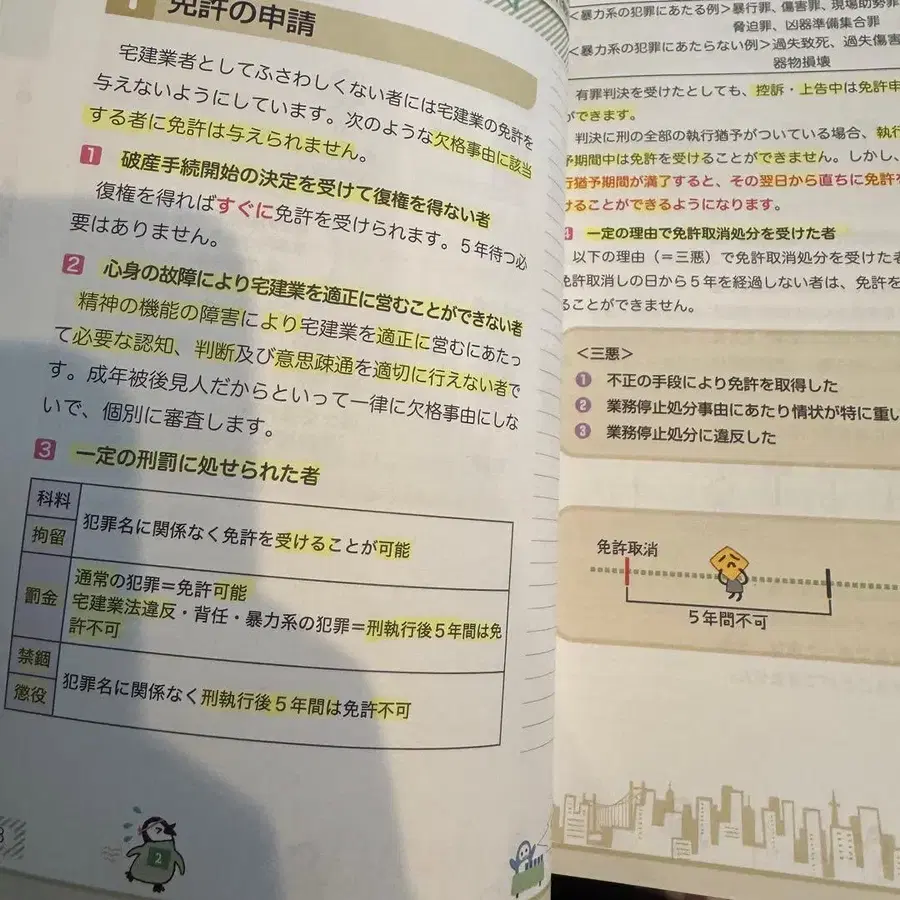 1 免許の申請
宅建業者としてふさわしくない者には宅建業の免許を
与えないようにしています。次のような欠格事由に該当
する者に免許は与えられません。
1 破産手続開始の決定を受けて復権を得ない者
復権を得ればすぐに免許を受けられます。5年待つ必
要はありません。
2 心身の故障により宅建業を適正に営むことができない者
精神の機能の障害により宅建業を適正に営むにあたっ
て必要な認知、判断及び意思疎通を適切に行えない者で
す。成年被後見人だからといって一律に欠格事由にしな
いで、個別に審査します。
3 一定の刑罰に処せられた者
科料
拘留
犯罪名に関係なく免許を受けることが可能
罰金
通常の犯罪=免許可能
宅建業法違反・背任・暴力系の犯罪=刑執行後5年間は免
許不可
禁錮
懲役
犯罪名に関係なく刑執行後5年間は免許不可
2
<暴力系の犯罪にあたる例>暴行罪、傷害罪、現場助勢罪
脅迫罪、凶器準備集合罪
<暴力系の犯罪にあたらない例>過失致死、過失傷害
器物損壊
有罪判決を受けたとしても、控訴・上告中は免許申
ができます。
判決に刑の全部の執行猶予がついている場合、執行
予期間中は免許を受けることができません。しかし、
行猶予期間が満了すると、その翌日から直ちに免許を
けることができるようになります。
4 一定の理由で免許取消処分を受けた者
以下の理由(=三悪)で免許取消処分を受けた者
免許取消しの日から5年を経過しない者は、免許を
ることができません。
<三悪>
1 不正の手段により免許を取得した
2 業務停止処分事由にあたり情状が特に重い
3 業務停止処分に違反した
免許取消
5年間不可